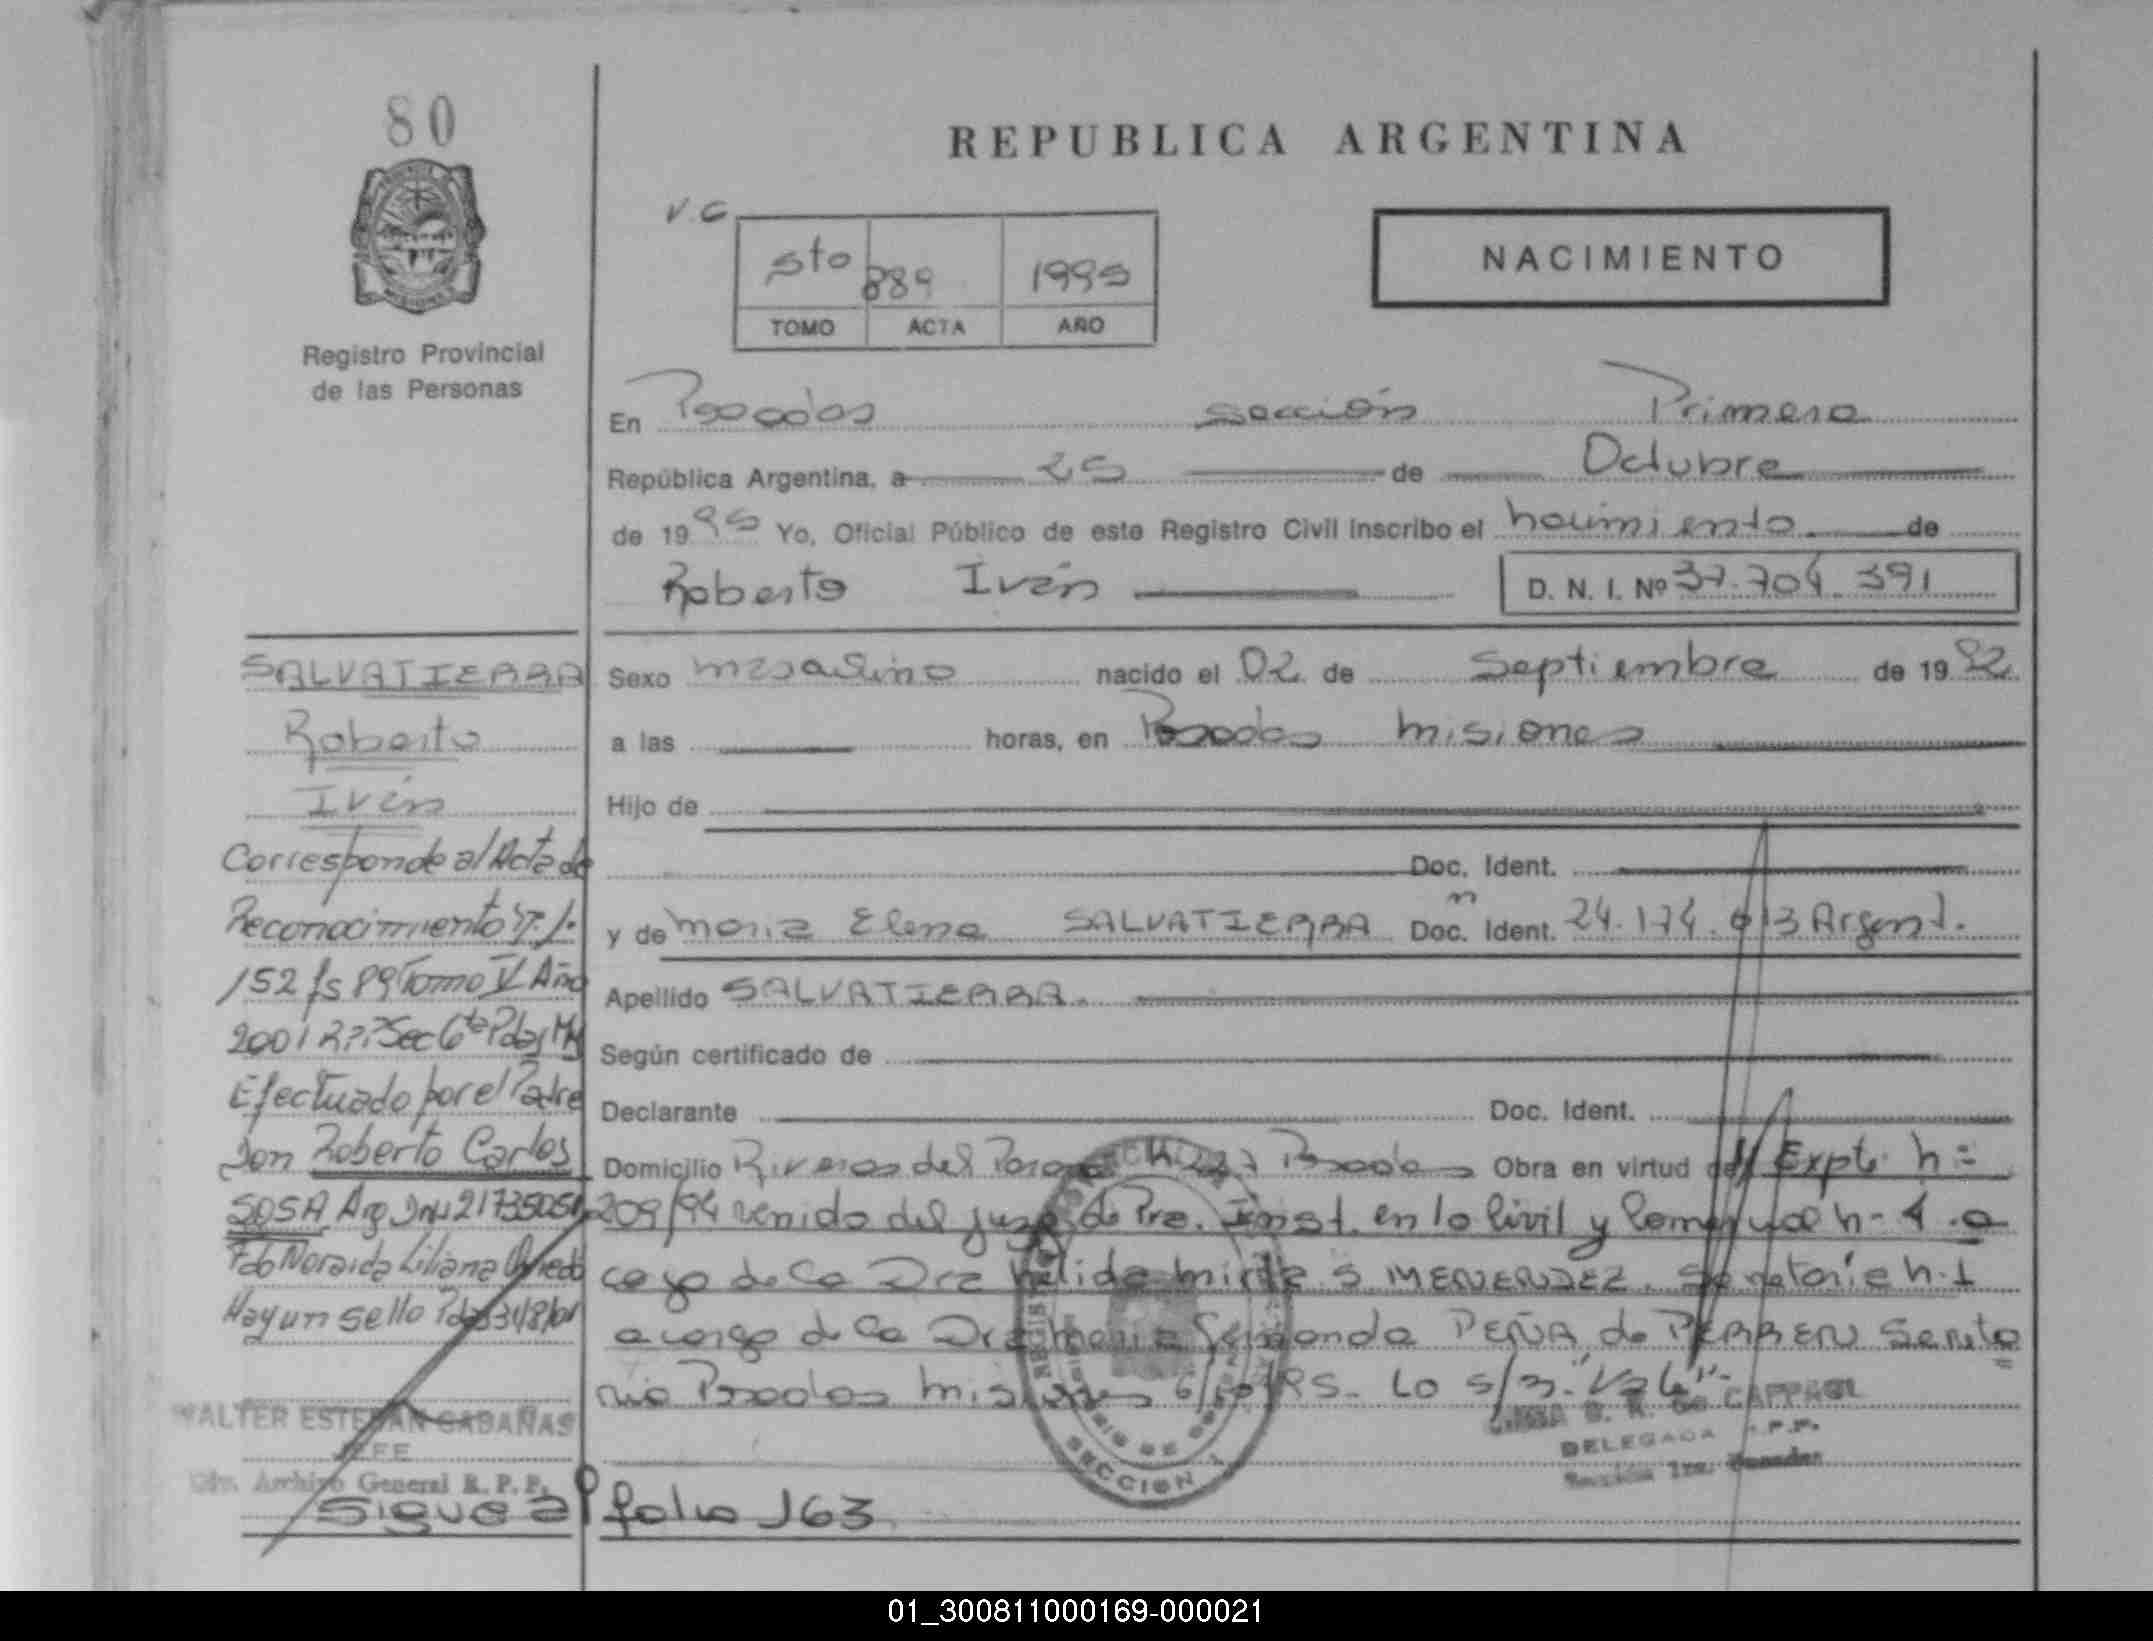 80
REPUBLICA ARGENTINA
V.C
5to 889 1995
TOMO ACTA AÑO
NACIMIENTO
Registro Provincial
de las Personas
En Posadas sección Primera
República Argentina, a 25 de Octubre
de 1995 Yo, Oficial Público de este Registro Civil inscribo el nacimiento de
Roberto Iván D. N. I. Nº 37.704.391
SALVATIERRA
Roberto
Iván
Corresponde al Acta de
Reconocimiento
152 fs 89 Tomo V Año
2001 Sec 6ta Pdas Mns
Efectuado por el Padre
Don Roberto Carlos
SOSA Arg Dni 21735051
Fdo Noraida Liliana Oviedo
Hay un sello Pdas 31/8/01
WALTER ESTEBAN CABAÑAS
JEFE
Archivo General R. P. P.
Sigue al folio 163
Sexo masculino nacido el 02 de Septiembre de 1992
a las horas, en Posadas misiones
Hijo de
Doc. Ident.
y de maria Elena SALVATIERRA Doc. Ident. 24.174.013 Argent.
Apellido SALVATIERRA
Según certificado de
Declarante Doc. Ident.
Domicilio Riveras del Parana Posadas Obra en virtud de Expte n=
209/94 venido del juzg. de Pra. Inst. en lo Civil y Comercial n- 4 . a
cargo de la Dra Nelida mirta S MENENDEZ. Secretaria n.1
a cargo de la Dra maria Fernanda PEÑA de PERREN Secreta
ria Posadas misiones 6/10/95. Lo s/r. "Vale".
DELEGADA R.P.P.
Sección 1ra. Posadas
SECCION 1
01_300811000169-000021